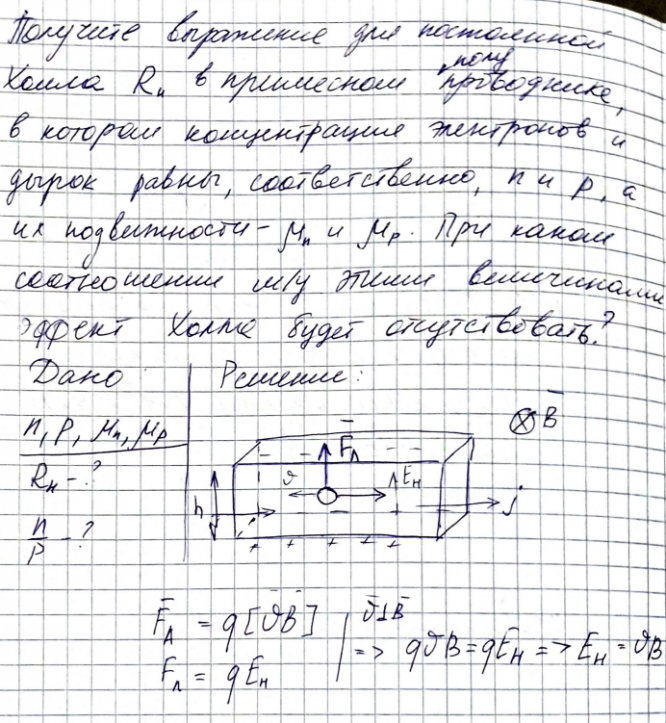 Получите выражение для постоянной
Холла Rн в примесном полупроводнике,
в котором концентрация электронов и
дырок равны, соответственно, n и p, а
их подвижности - μn и μp. При каком
соотношении м/у этими величинами
эффект Холла будет отсутствовать?
Дано
Решение:
n, p, μn, μp
RH - ?
n/p - ?
⊗ B̄
F̄Л
- - - -
ϑ
EH
h
-
+
j
+ + + + +
F̄Л = q[ϑ̄B̄]
FЛ = qEH
ϑ̄⊥B̄
=> qϑB = qEH => EH = ϑB